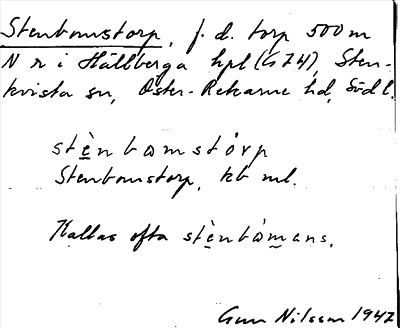 Stenbomstorp, f. d. torp 500 m
N r i Hällberga hpl (G 74), Sten-
kvista sn, Öster-Rekarne hd, Södl.
stènbωmstårp
Stenbomstorp, kb ml.
Kallas ofta stènbåmens.
Gun Nilsson 1947